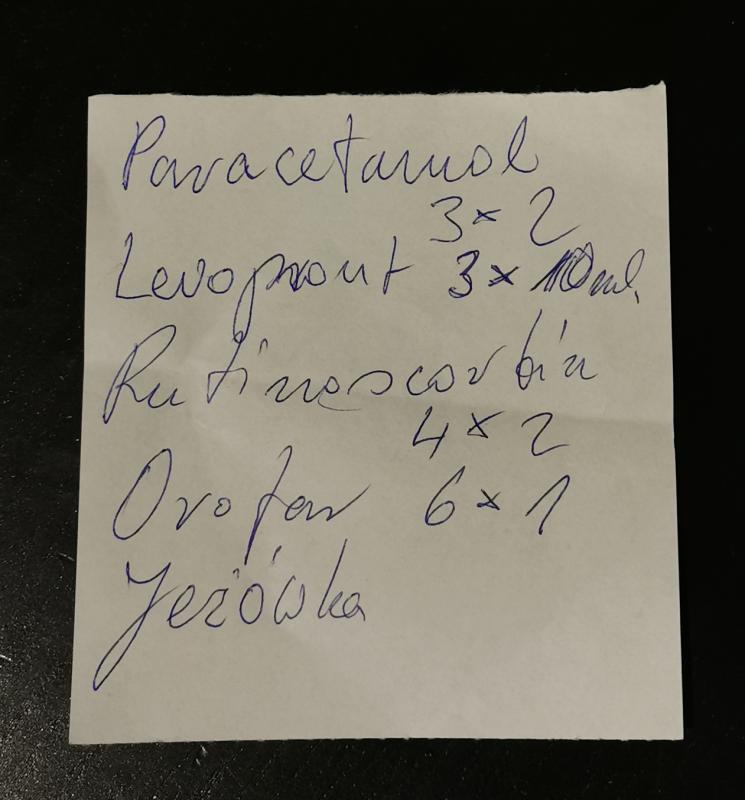 Paracetamol
3 x 2
Levopront 3 x 10 ml.
Rutinoscorbin
4 x 2
Orofar 6 x 1
Jeżówka